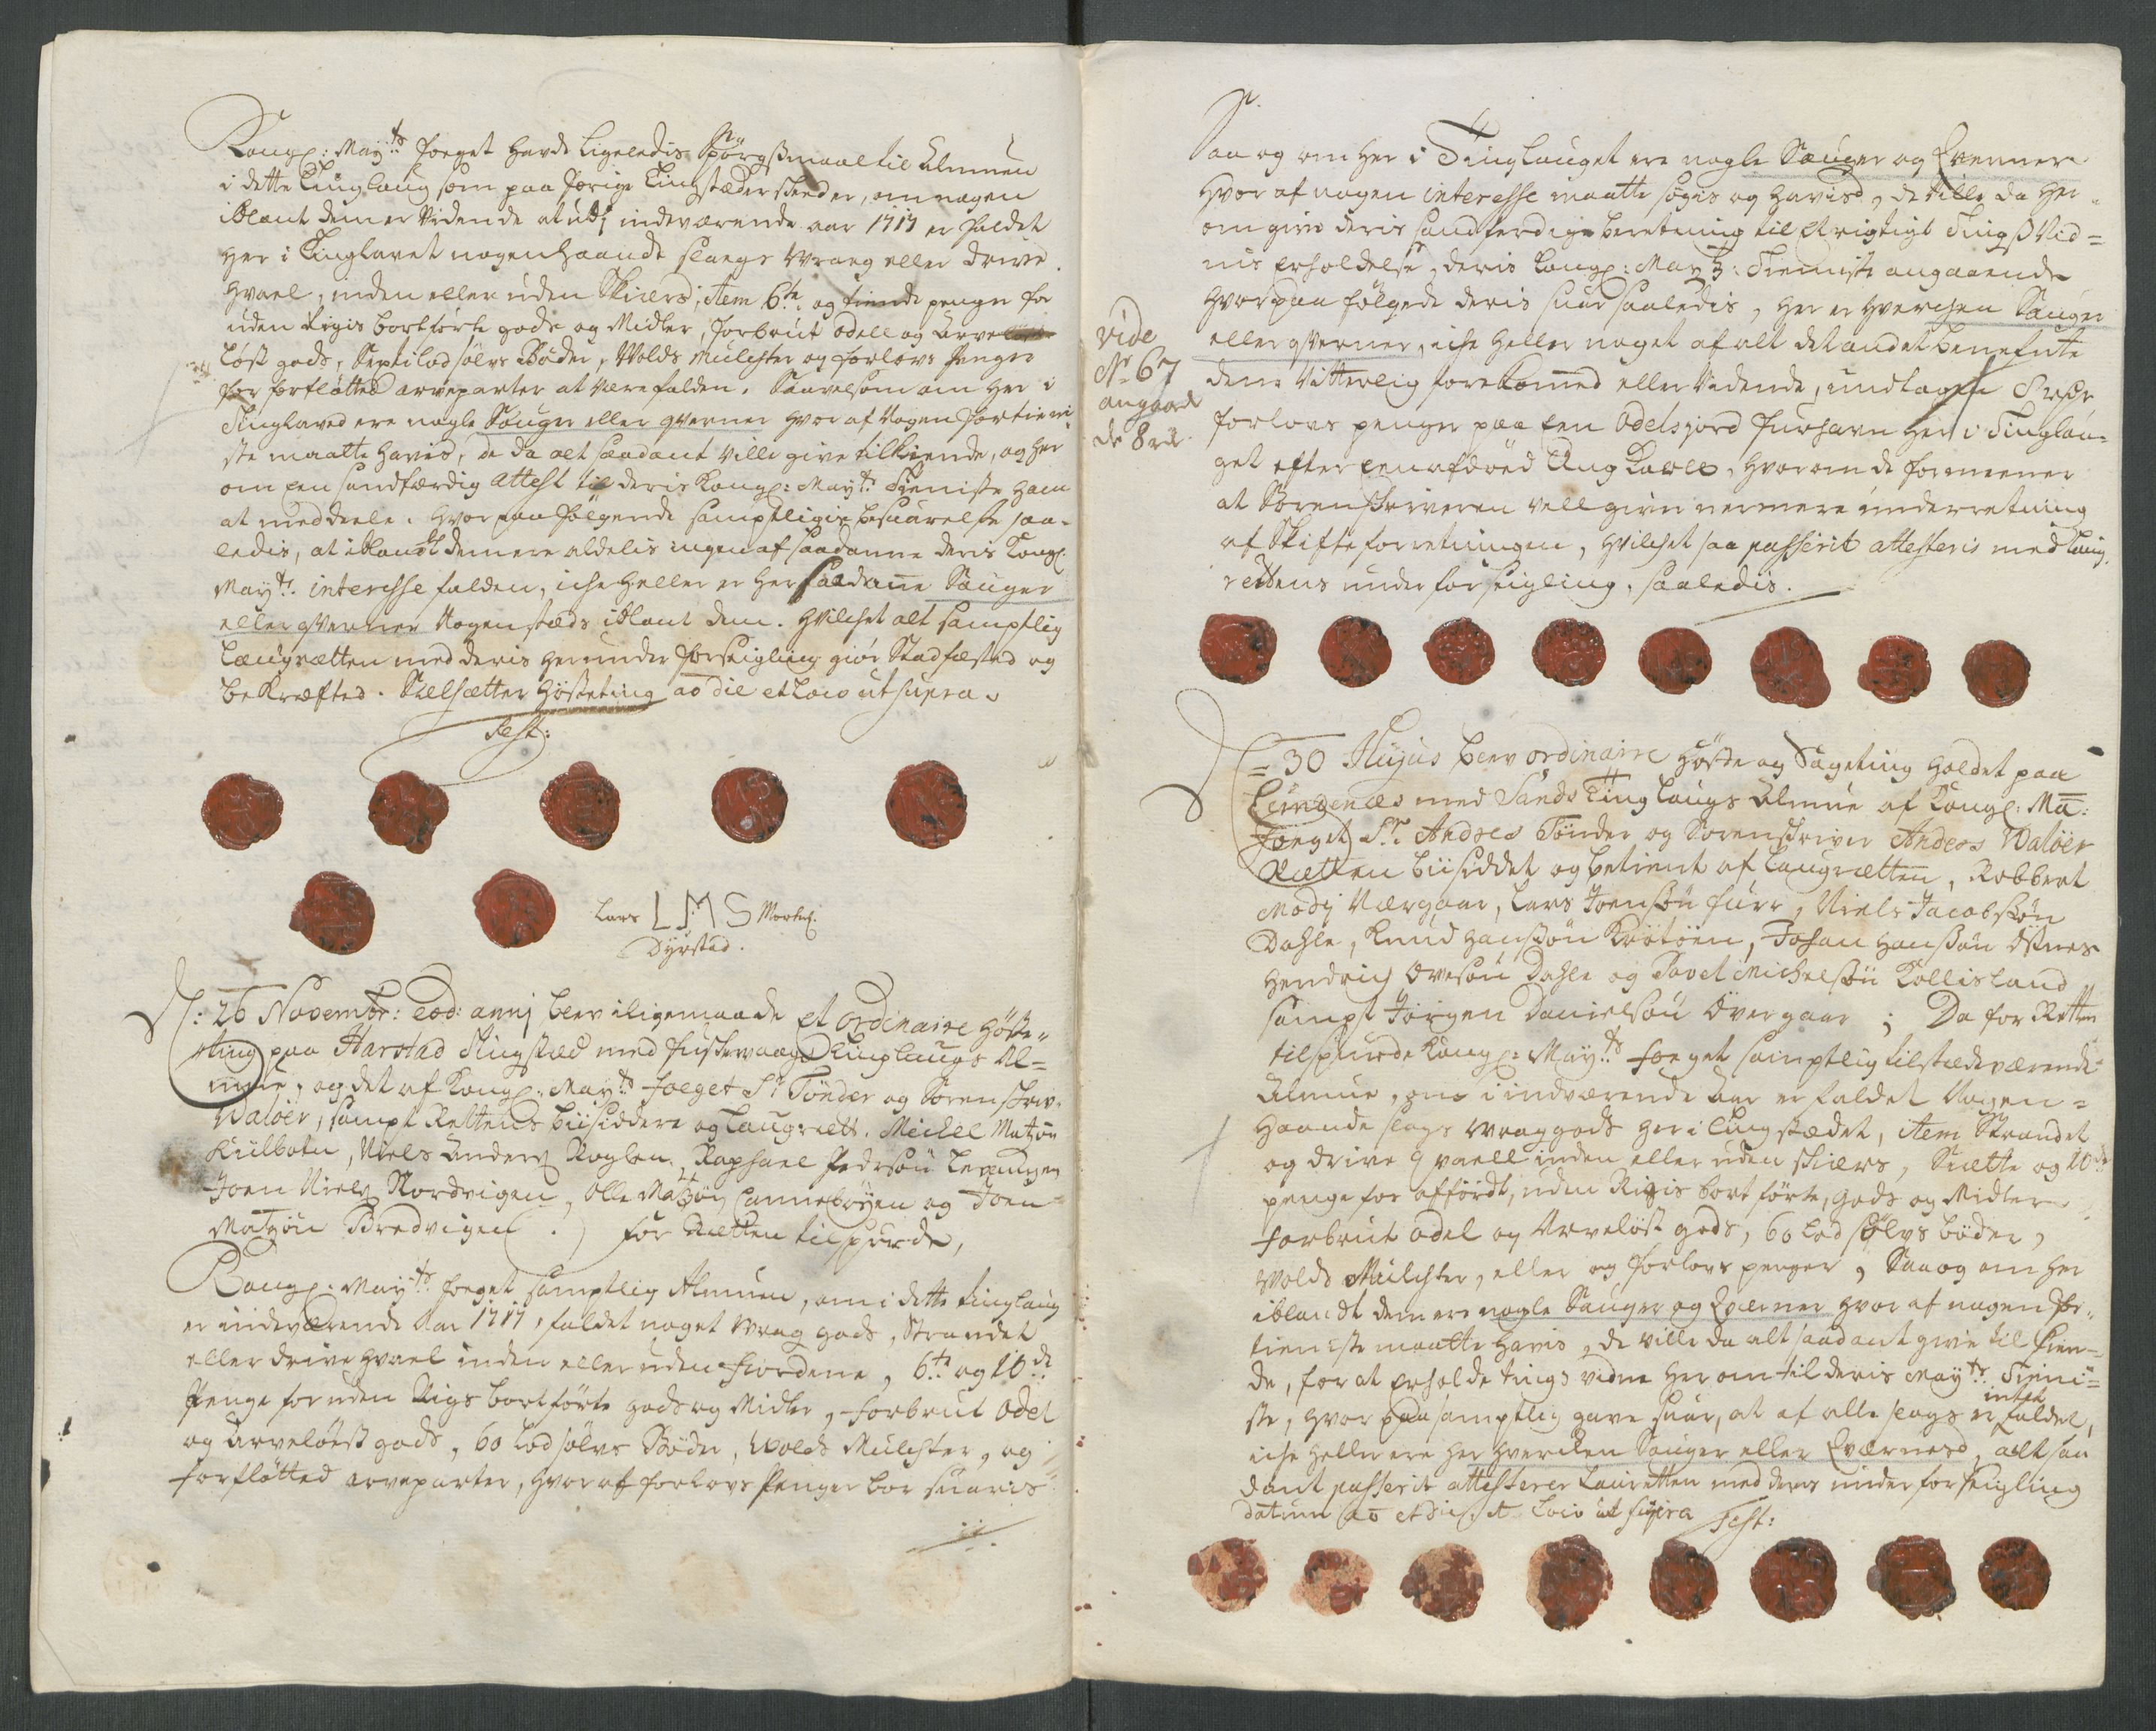 Kongl: May.ts foeget hafde ligeledis Spörgsmaal til Almuen
i dette Tinglaug som paa forige Tingstæder skeeder, om nogen
iblant dem er Vidende at udi indeværende aar 1717 er faldet
her i Tinglavet nogenhaande slaegs Wraeg eller drive
hvael, inden eller uden Skiers; Item 6te og tiende penger for
uden Rigis bortförte gods og Midler, forbrut odell og Arve
löst gods, Septilod sölvs Böder, Volds Mulchter og forlovs Penger
for forfløtted arveparter at være falden. Saavelsom om her i
Tinglaved ere nogle Sauger eller qverner hvor af Nogen fortieni-
ste maatte havis, de da alt saadant ville give tilkiende, og her
om een sandfærdig Attest til deris Kongl: May.ts Tieniste ham
at meddeele. Hvor paa følgende samptligis besvarelse saa-
ledis, at iblandt dem ere aldelis ingen af saadanne deris Kongl:
May.ts interesse falden, iche heller er her saadanne Sauger
eller qverner Nogenstæds iblant dem. Hvilchet alt samptlig
Laugrætten med deris herunder forseigling giör Stadfæsted og
bekræfted. Sælsætter Høsteting ao die et loco ut supra.
Test:
Lars L M S Mortens:
Dyrstad.
D: 26 Novembr: eod: annj blev iligemaade et ordinaire Höste-
ting paa Harstad Tingstæd med Tinglaugs Al=
mue, og det af Kongl: May.ts foeget Sr Tönder og Sorenskriv:
Waløer, sampt Rettens bisiddere og Laugrett. Michel Matzön
Kiilbotn, Niels Anders Røglen, Raphael Pedersön
Joen Niels Nordvigen, Olle Matzön og Joen
Matzön Bredvigen. for Rætten tilspurde,
Kongl: May.ts foeget samptlig Almuen, om i dette tinglaug
er indeværende Aar 1717, faldet noget Wrag gods, Strandet
eller drive hvael inden eller uden fiordene, 6te og 10de
Penge for uden Rigs bortförte gods og Midler, forbrut Odel
og Arvelöest gods, 60 Lod sølvs Böder, Wolds Mulchter, og
forfløtted arveparter, hvor af forlovs Penger bør svaris
Saa og om her i Tinglauget ere nogle Sauger og Qverner
hvor af nogen interesse maatte søgis og havis, de ville da her-
om give deris sandferdige beretning til et rigtigt Tings Vid=
nis erholdelse, deris Kongl: May.ts: Tieniste angaaende
Hvor paa fölgede deris svar saaledis, her er hverchen Sauger
eller qverner, iche heller noget af alt det andet benefnte
dem Vitterlig forekommed eller vidende, undtagen
forlovs penger paa een Odelsjord her i Tinglau-
get efter een afdöed Ung Karl, hvorom de formeener
at Sorenskriveren vell giver nermere underretning
af Skifte forretningen, hvilchet saa passerit attesteris med Laug
rettens under forseigling, saaledis.
vide
No 67
angaaen
de 8 rd
D: 30 Hujus blev ordinaire Höste og Sageting holdet paa
med Sands Ting laugs Almue af Kongl: Ma:
foeget Sr. Andres Tönder og Sorenskriver Anders Waløer
Rætten biisiddet og betient af Laugrætten, Robbert
Mody Nærgaar, Lars Joensön furr, Niels Jacobsön
Dahle, Knud Hansön Krötöen, Johan Hansön
Hendrich Ovesön Dahle og Povel Michelsön Kollisland
sampt Jörgen Danielsön Övergaar; Da for Retten
tilspurde Kongl: May.ts foeget samptlig tilstædeværende
Almue, om i indværende Aar er faldet Nogen=
haande slags Vraggods her i Tingstædet, item Strandet
og drive qvaell inden eller uden skiers, Siette og 10de
penge for afførdt, uden Rigis bort förte, gods og Midler
forbrut odel og Arvelöst gods, 60 Lod sølvs böder,
Wolds Mulchter, eller og forlovs penger, Saa og om her
iblandt dem ere nogle Sauger og Qværner hvor af nogen for-
tieniste maatte havis, de ville da alt saadant give til kien-
de, for at erholde tings vidne her om til deris May.ts Tieni=
ste, hvor paa samptlig gave svar, at af alle slags er intet faldet,
iche heller ere her hverchen Sauger eller Qværner, alt saa
dant passerit attesterer Lauretten med deres underforseigling
datum ao et die et loco ut supra Test: